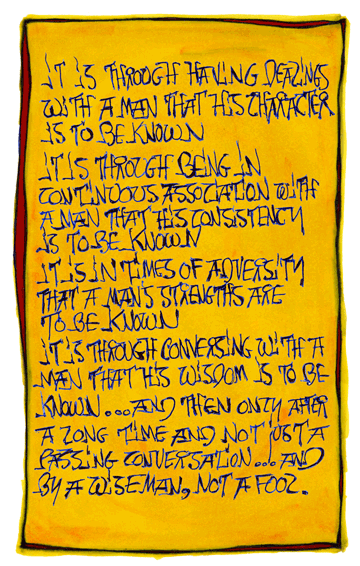 IT IS THROUGH HAVING DEALINGS
WITH A MAN THAT HIS CHARACTER
IS TO BE KNOWN
IT IS THROUGH BEING IN
CONTINUOUS ASSOCIATION WITH
A MAN THAT HIS CONSISTENCY
IS TO BE KNOWN
IT IS IN TIMES OF ADVERSITY
THAT A MAN'S STRENGTHS ARE
TO BE KNOWN
IT IS THROUGH CONVERSING WITH A
MAN THAT HIS WISDOM IS TO BE
KNOWN...AND THEN ONLY AFTER
A LONG TIME AND NOT JUST A
PASSING CONVERSATION...AND
BY A WISEMAN, NOT A FOOL.